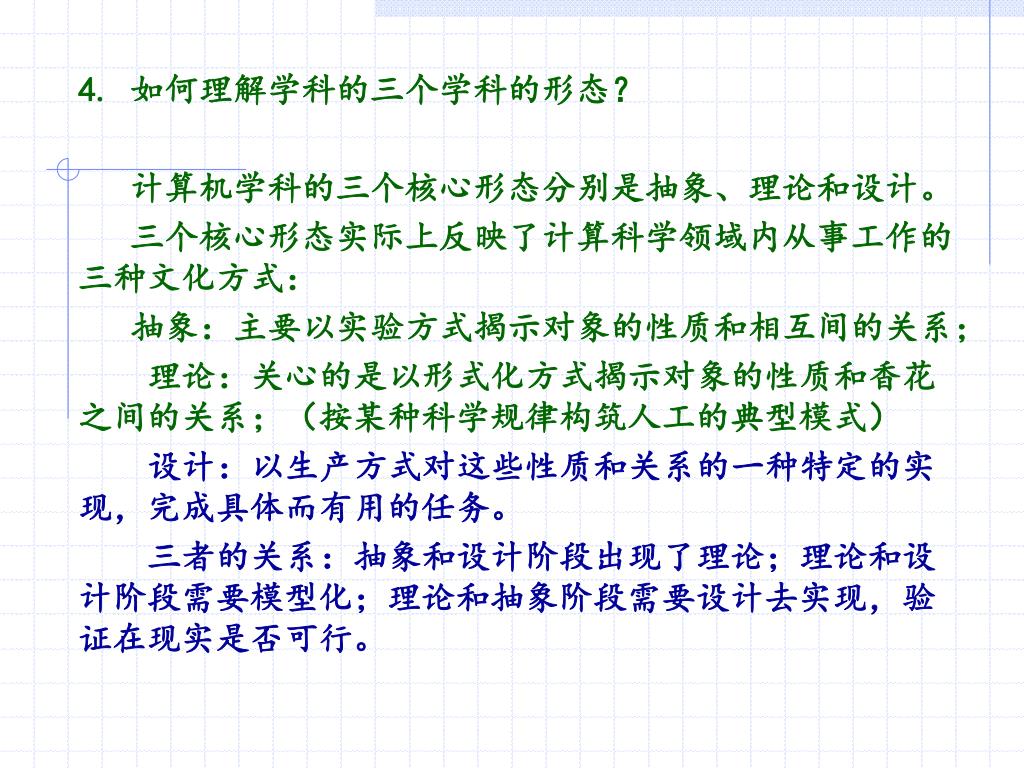 4. 如何理解学科的三个学科的形态？
计算机学科的三个核心形态分别是抽象、理论和设计。
三个核心形态实际上反映了计算科学领域内从事工作的
三种文化方式：
抽象：主要以实验方式揭示对象的性质和相互间的关系；
理论：关心的是以形式化方式揭示对象的性质和香花
之间的关系；（按某种科学规律构筑人工的典型模式）
设计：以生产方式对这些性质和关系的一种特定的实
现，完成具体而有用的任务。
三者的关系：抽象和设计阶段出现了理论；理论和设
计阶段需要模型化；理论和抽象阶段需要设计去实现，验
证在现实是否可行。